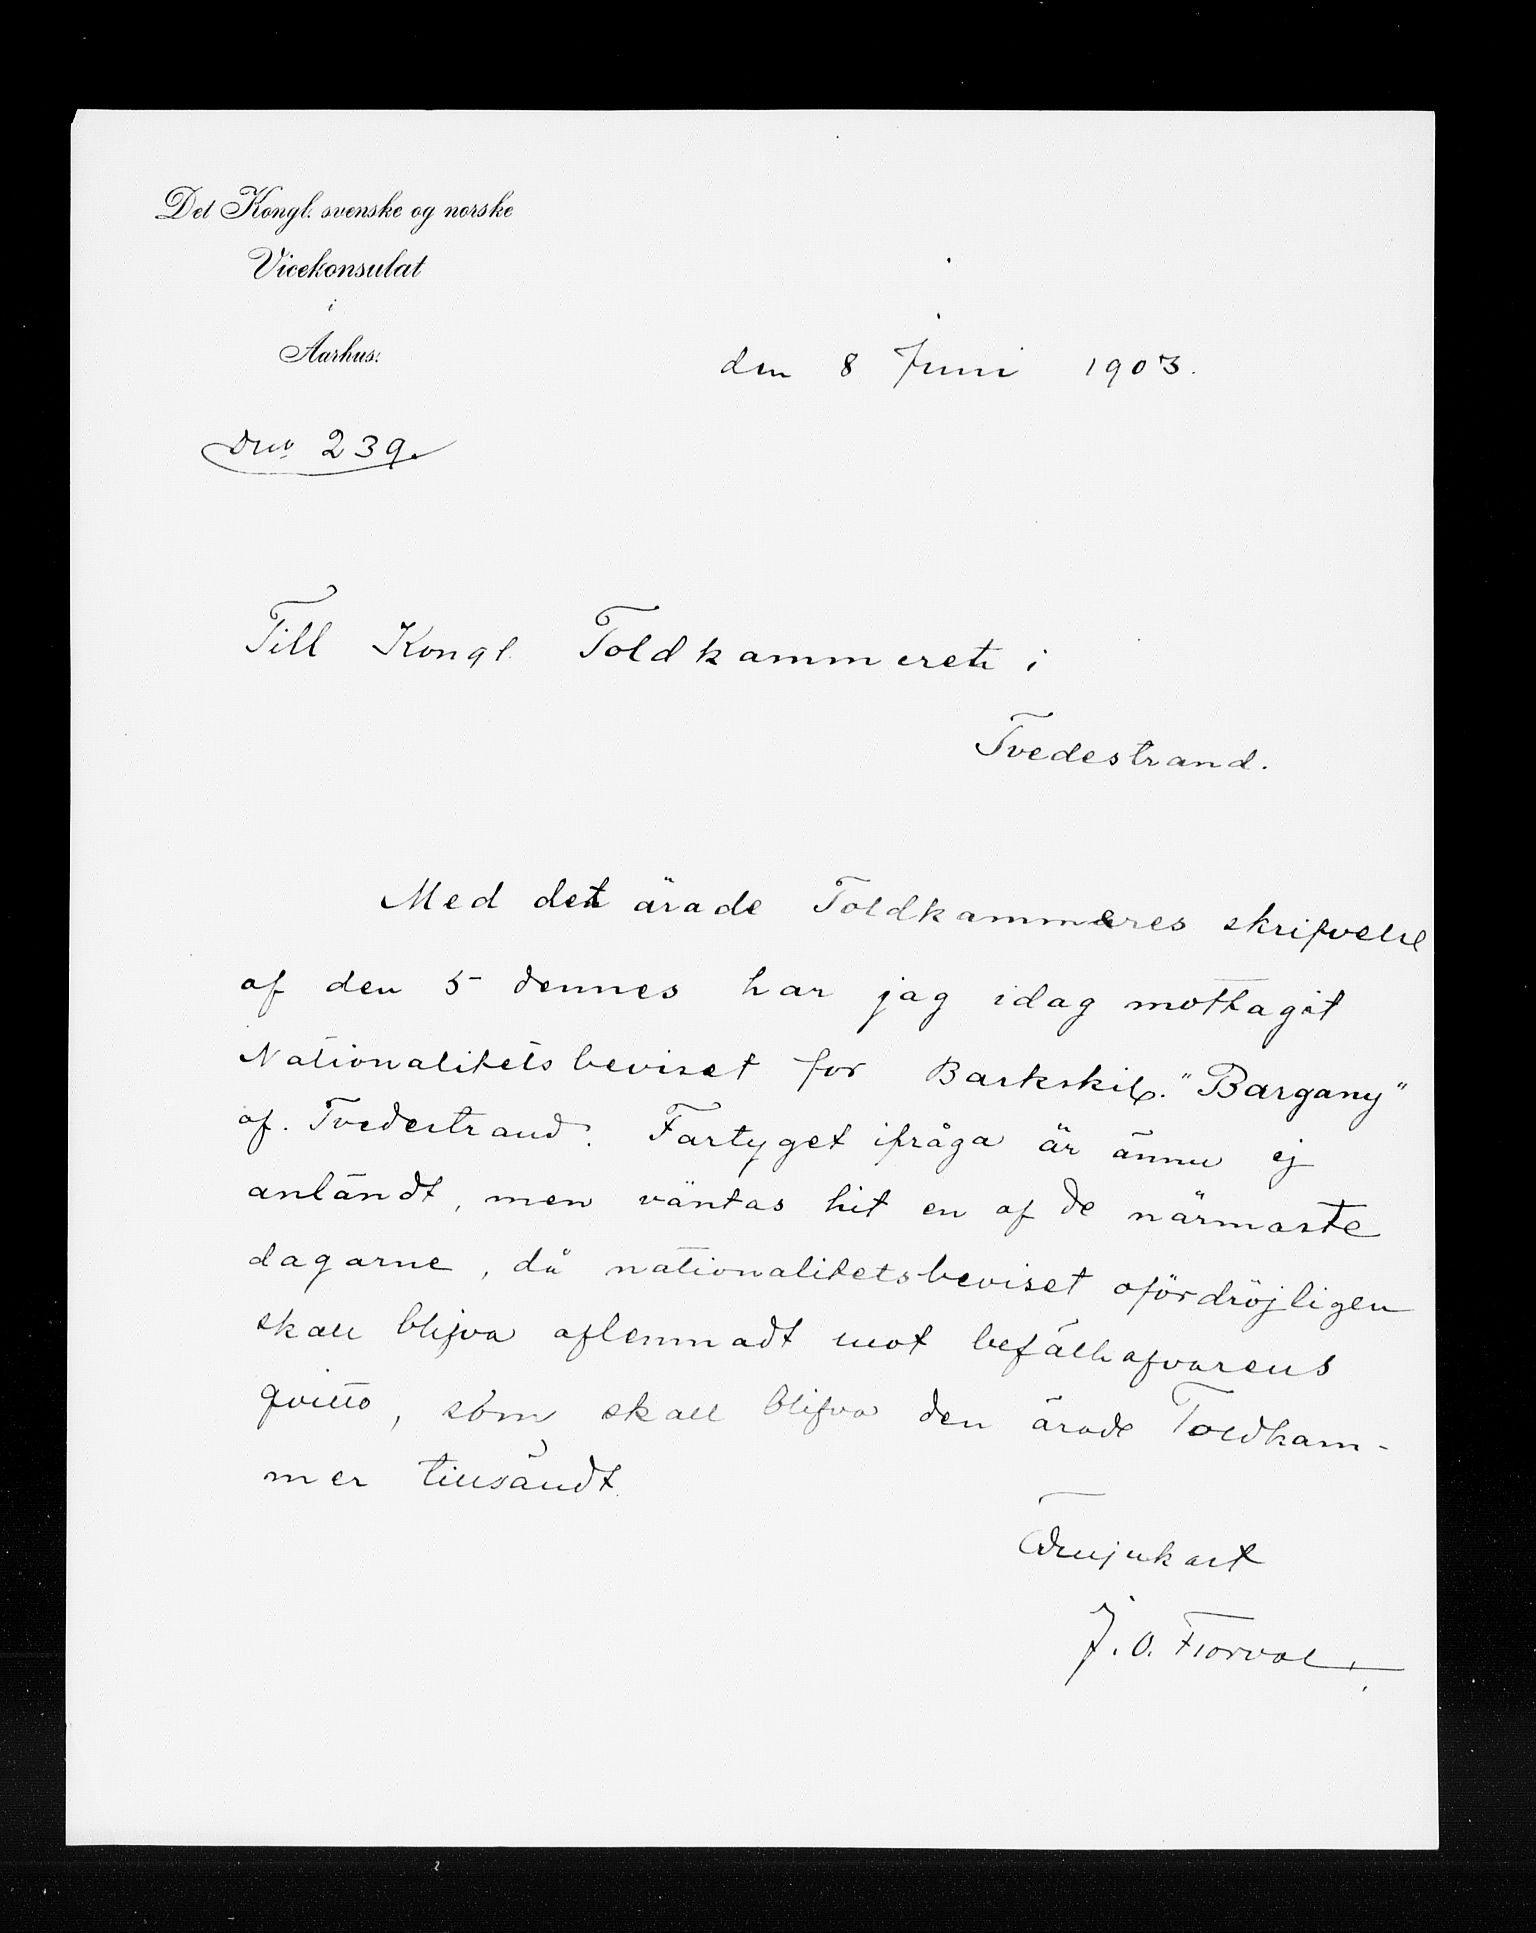 Det Kongl. svenske og norske
Vicekonsulat
i
Aarhus.
den 8 Juni 1903.
Dno 239.
Till Kongl Toldkammeret i
Tvedestrand.
Med det ärade Toldkammeres skrifvelse
af den 5 dennes har jag idag mottagit
Nationalitetsbeviset for Barkskib. "Bargany"
af. Tvedestrand. Fartyget ifråga är ännu ej
anländt, men väntas hit en af de närmaste
dagarne, då nationalitetsbeviset ofördröjligen
skall blifva aflemnadt mot befälhafvarens
qvitto, som skall blifva den ärade Toldkam-
mer tillsändt.
J. O.